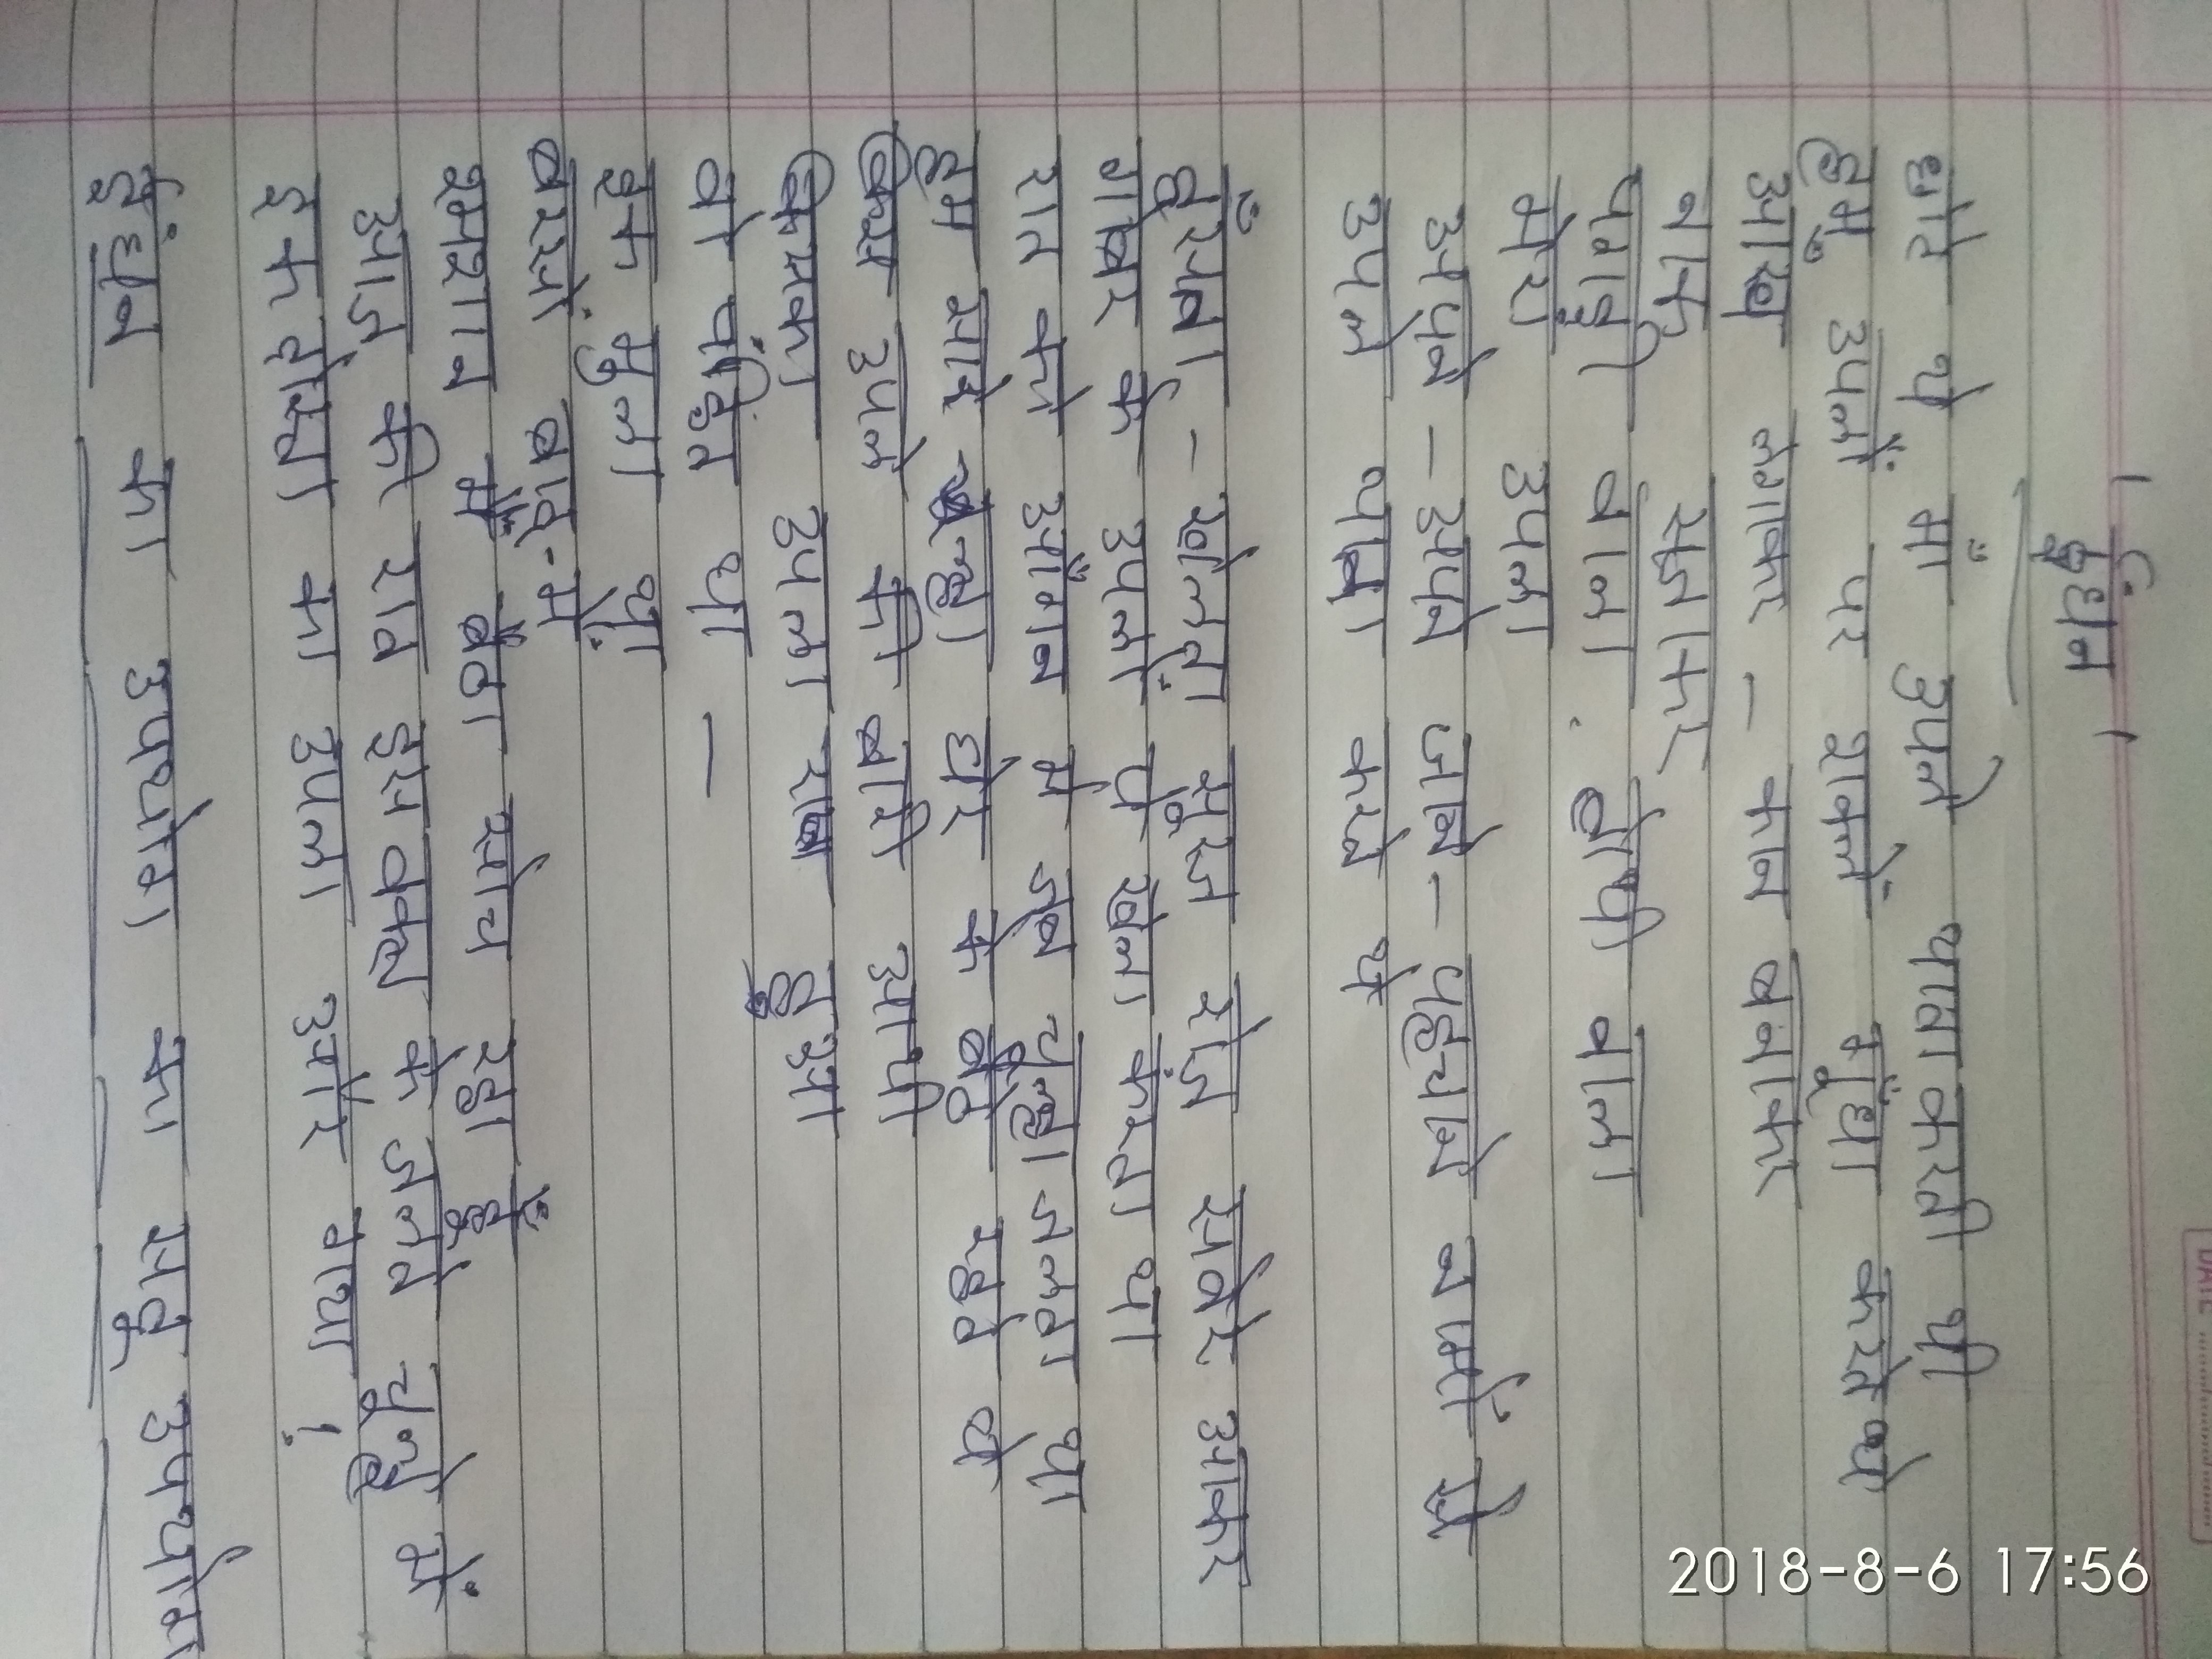 ईंधन
छोटे थे माँ उपले थापा करती थी
हम उपलों पर शक्लें गूँधा करते थे
आँख लगाकर - कान बनाकर
नाक सजाकर
पगड़ी वाला, टोपी वाला
मेरा उपला
अपने-अपने जाने-पहचाने नामों से
उपले थापा करते थे
हँसता-खेलता सूरज रोज सवेरे आकर
गोबर के उपलों पे खेला करता था
रात को आँगन में जब चूल्हा जलता था
हम सारे चूल्हा घेर के बैठे रहते थे
किस उपले की बारी आयी
किसका उपला राख हुआ
वो पंडित था —
इक मुन्ना था
बरसों बाद-मैं
श्मशान में बैठा सोच रहा हूँ
आज की रात इस वक्त के जलते चूल्हे में
इक दोस्त का उपला और गया!
ईंधन का उपयोग का सदुपयोग
2018-8-6 17:56
DATE